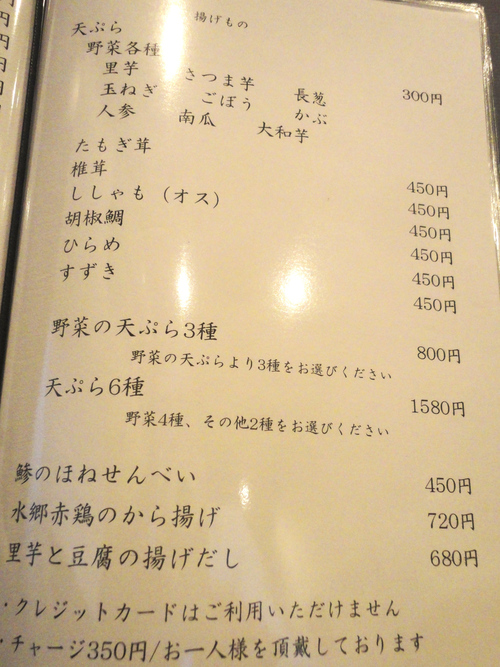 揚げもの
天ぷら
野菜各種
里芋 さつま芋 長葱 300円
玉ねぎ ごぼう かぶ
人参 南瓜 大和芋
たもぎ茸 450円
椎茸 450円
ししゃも（オス） 450円
胡椒鯛 450円
ひらめ 450円
すずき 450円
野菜の天ぷら3種 800円
野菜の天ぷらより3種をお選びください
天ぷら6種 1580円
野菜4種、その他2種をお選びください
鯵のほねせんべい 450円
水郷赤鶏のから揚げ 720円
里芋と豆腐の揚げだし 680円
・クレジットカードはご利用いただけません
・チャージ350円/お一人様を頂戴しております